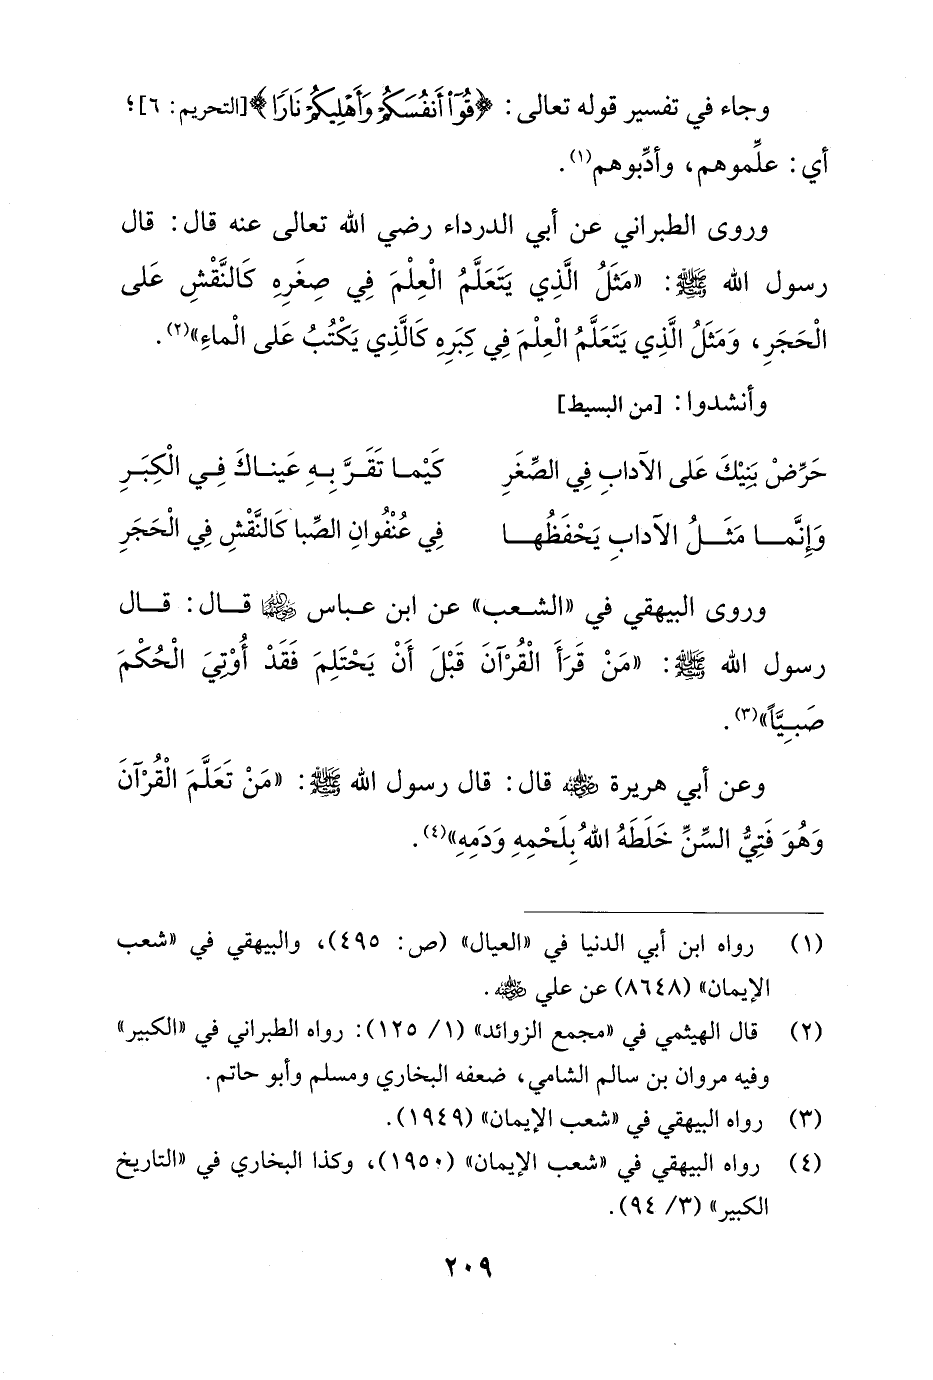 وجاء في تفسير قوله تعالى: ﴿قُوٓا۟ أَنفُسَكُمْ وَأَهْلِيكُمْ نَارًا﴾[التحريم: ٦]؛
أي: علِّموهم، وأدِّبوهم(١).
وروى الطبراني عن أبي الدرداء رضي الله تعالى عنه قال: قال
رسول الله ﷺ: «مَثَلُ الَّذِي يَتَعَلَّمُ الْعِلْمَ فِي صِغَرِهِ كَالنَّقْشِ عَلى
الْحَجَرِ، وَمَثَلُ الَّذِي يَتَعَلَّمُ الْعِلْمَ فِي كِبَرِهِ كَالَّذِي يَكْتُبُ عَلى الْماءِ»(٢).
وأنشدوا: [من البسيط]
حَرِّضْ بَنِيْكَ عَلى الآدابِ فِي الصِّغَرِ كَيْما تَقَرَّ بِهِ عَيناكَ فِي الْكِبَرِ
وَإِنَّما مَثَلُ الآدابِ يَحْفَظُها فِي عُنْفُوانِ الصِّبا كَالنَّقْشِ فِي الْحَجَرِ
وروى البيهقي في «الشعب» عن ابن عباس رضي الله عنهما قال: قال
رسول الله ﷺ: «مَنْ قَرَأَ الْقُرْآنَ قَبْلَ أَنْ يَحْتَلِمَ فَقَدْ أُوْتِيَ الْحُكْمَ
صَبِيَّاً»(٣).
وعن أبي هريرة رضي الله عنه قال: قال رسول الله ﷺ: «مَنْ تَعَلَّمَ الْقُرْآنَ
وَهُوَ فَتِيُّ السِّنِّ خَلَطَهُ اللهُ بِلَحْمِهِ وَدَمِهِ»(٤).
(١) رواه ابن أبي الدنيا في «العيال» (ص: ٤٩٥)، والبيهقي في «شعب
الإيمان» (٨٦٤٨) عن علي رضي الله عنه.
(٢) قال الهيثمي في «مجمع الزوائد» (١/ ١٢٥): رواه الطبراني في «الكبير»
وفيه مروان بن سالم الشامي، ضعفه البخاري ومسلم وأبو حاتم.
(٣) رواه البيهقي في «شعب الإيمان» (١٩٤٩).
(٤) رواه البيهقي في «شعب الإيمان» (١٩٥٠)، وكذا البخاري في «التاريخ
الكبير» (٣/ ٩٤).
٢٠٩